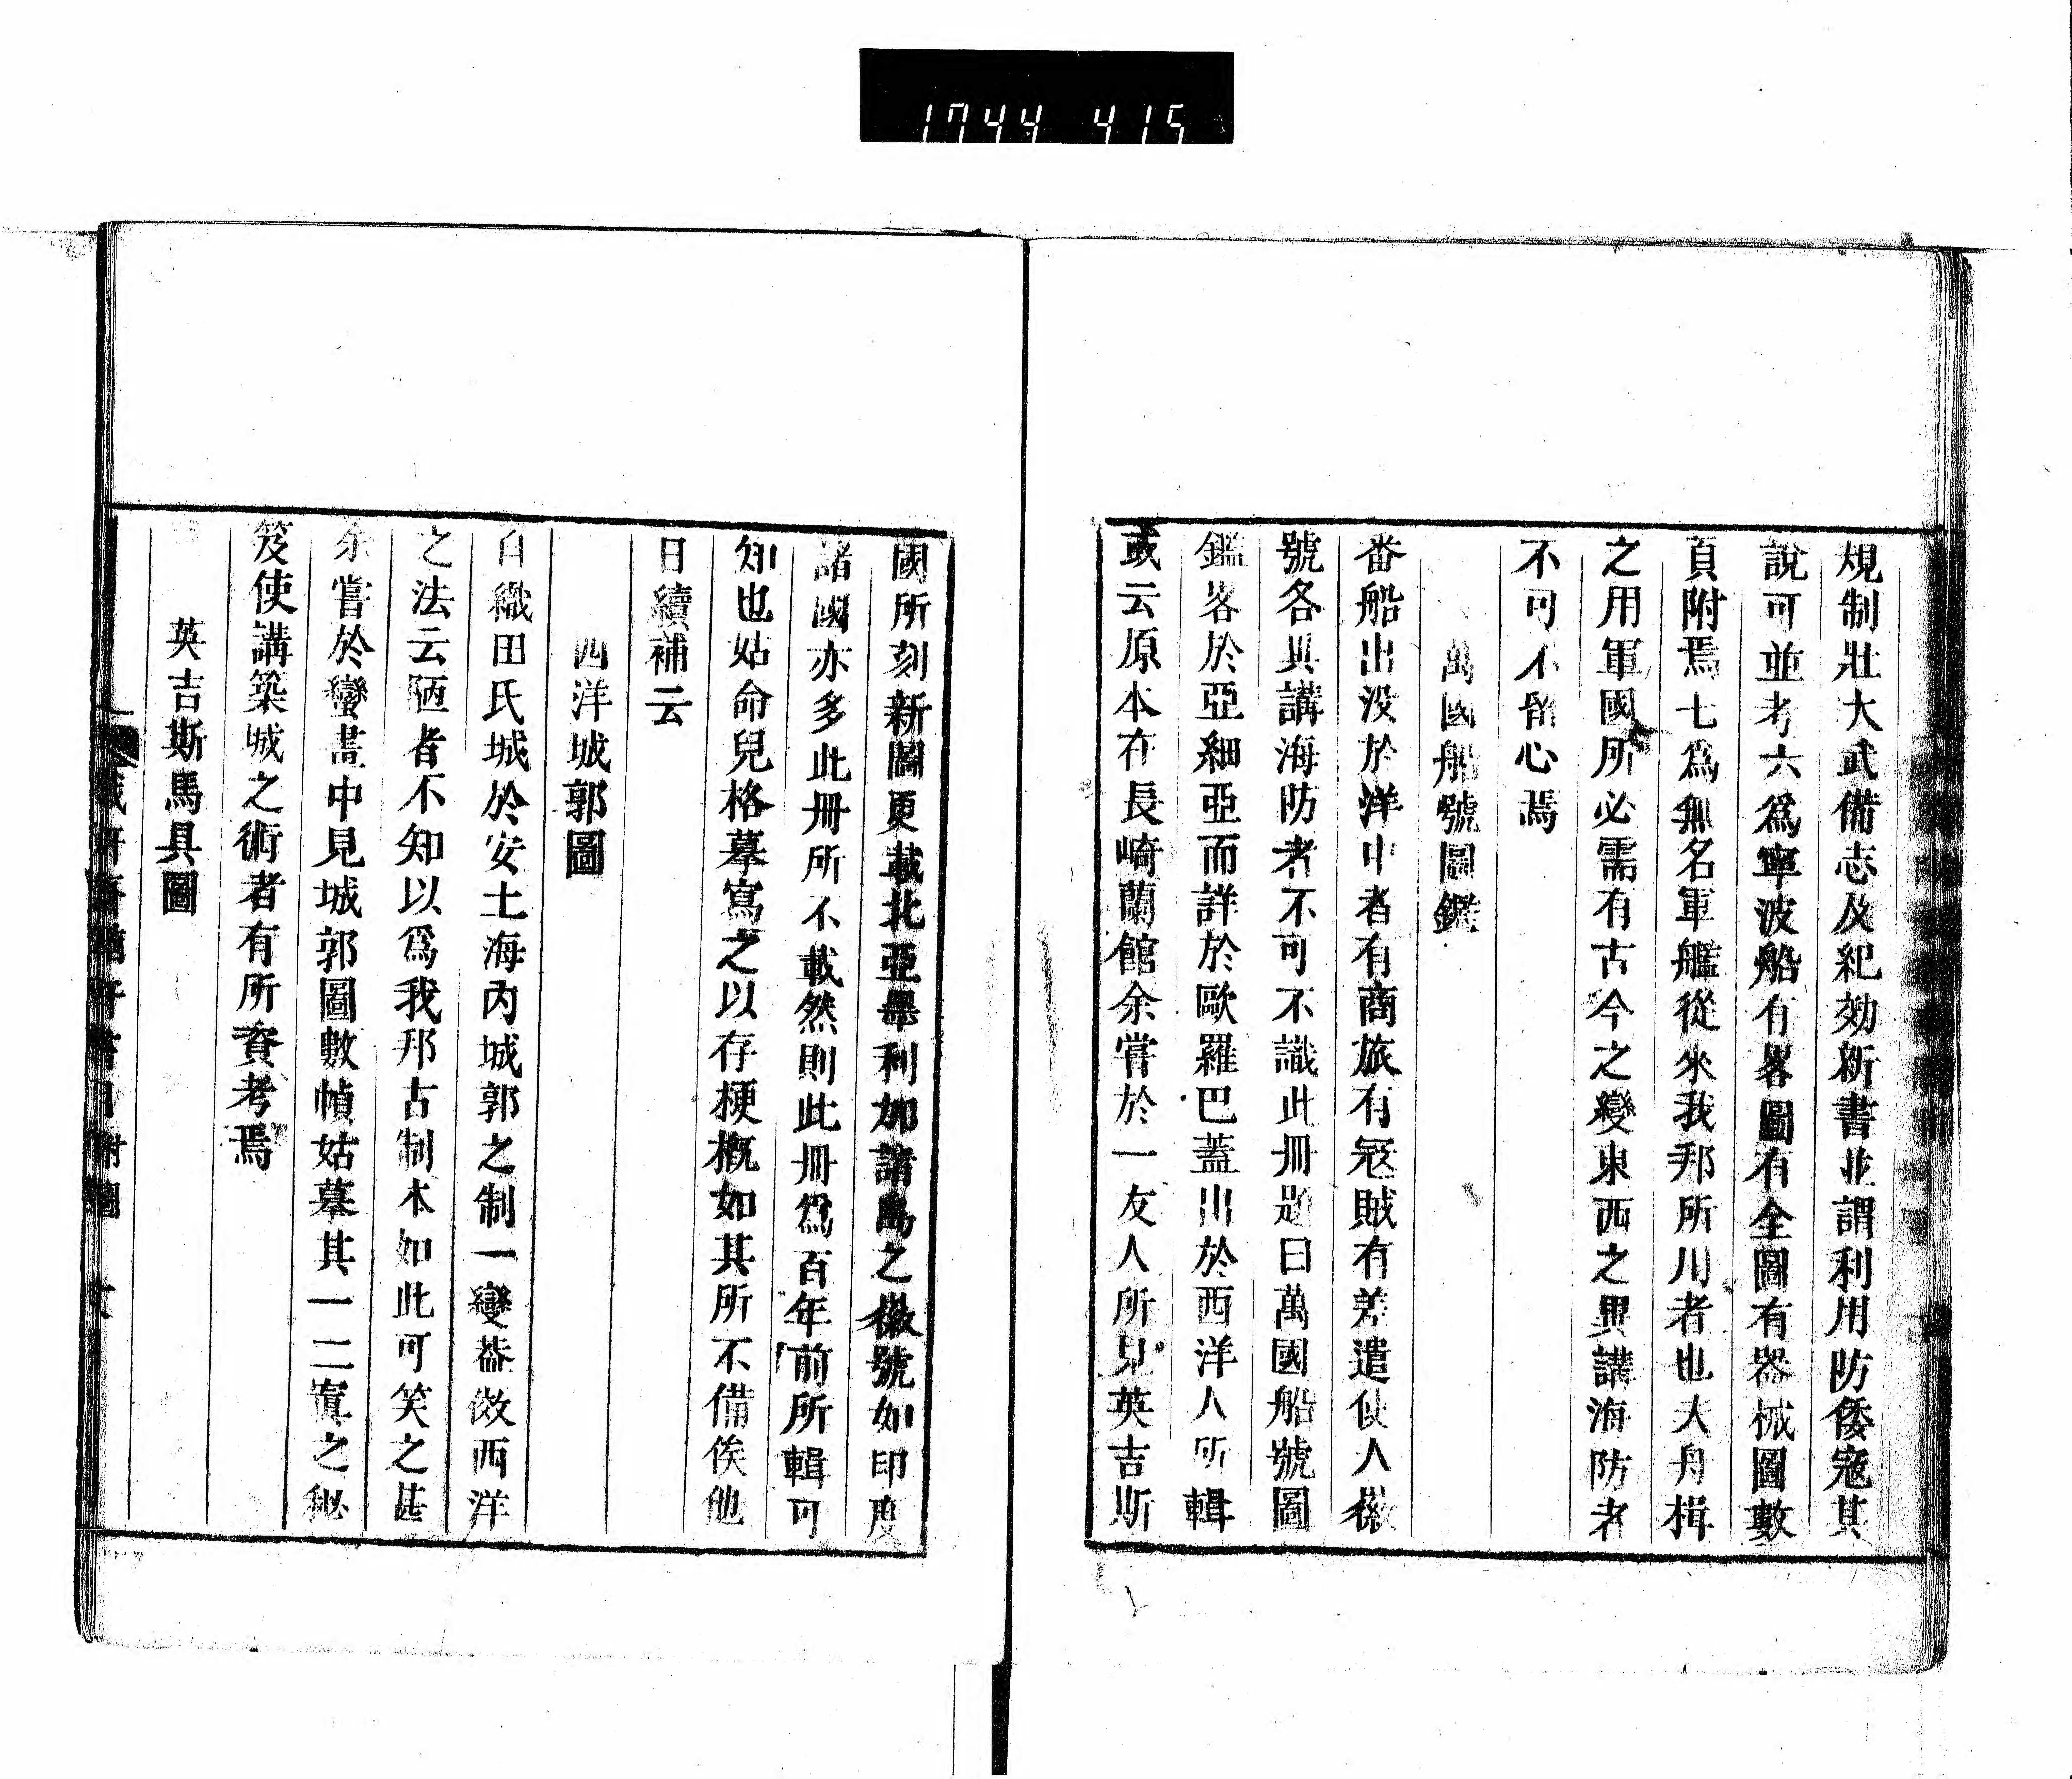 1744 415
規制壯大武備志及紀効新書並謂利用防倭寇其
說可並考六爲寧波船有畧圖有全圖有器械圖數
頁附焉七爲無名軍艦從來我邦所用者也大舟楫
之用軍國所必需有古今之變東西之異講海防者
不可不留心焉
萬國船號圖鑑
番船出没於洋中者有商旅有冦賊有差遣使人徽
號各異講海防者不可不識此冊題曰萬國船號圖
鑑畧於亞細亞而詳於歐羅巴蓋出於西洋人所輯
或云原本在長崎蘭館余嘗於一友人所見英吉斯
國所刻新圖更載北亞墨利加諸島之徽號如印度
諸國亦多此冊所不載然則此冊爲百年前所輯可
知也姑命兒格摹寫之以存梗概如其所不備俟他
日續補云
西洋城郭圖
自織田氏城於安土海内城郭之制一變葢傚西洋
之法云陋者不知以爲我邦古制本如此可笑之甚
余嘗於蠻畫中見城郭圖數幀姑摹其一二寘之秘
笈使講築城之術者有所資考焉
英吉斯馬具圖
附圖